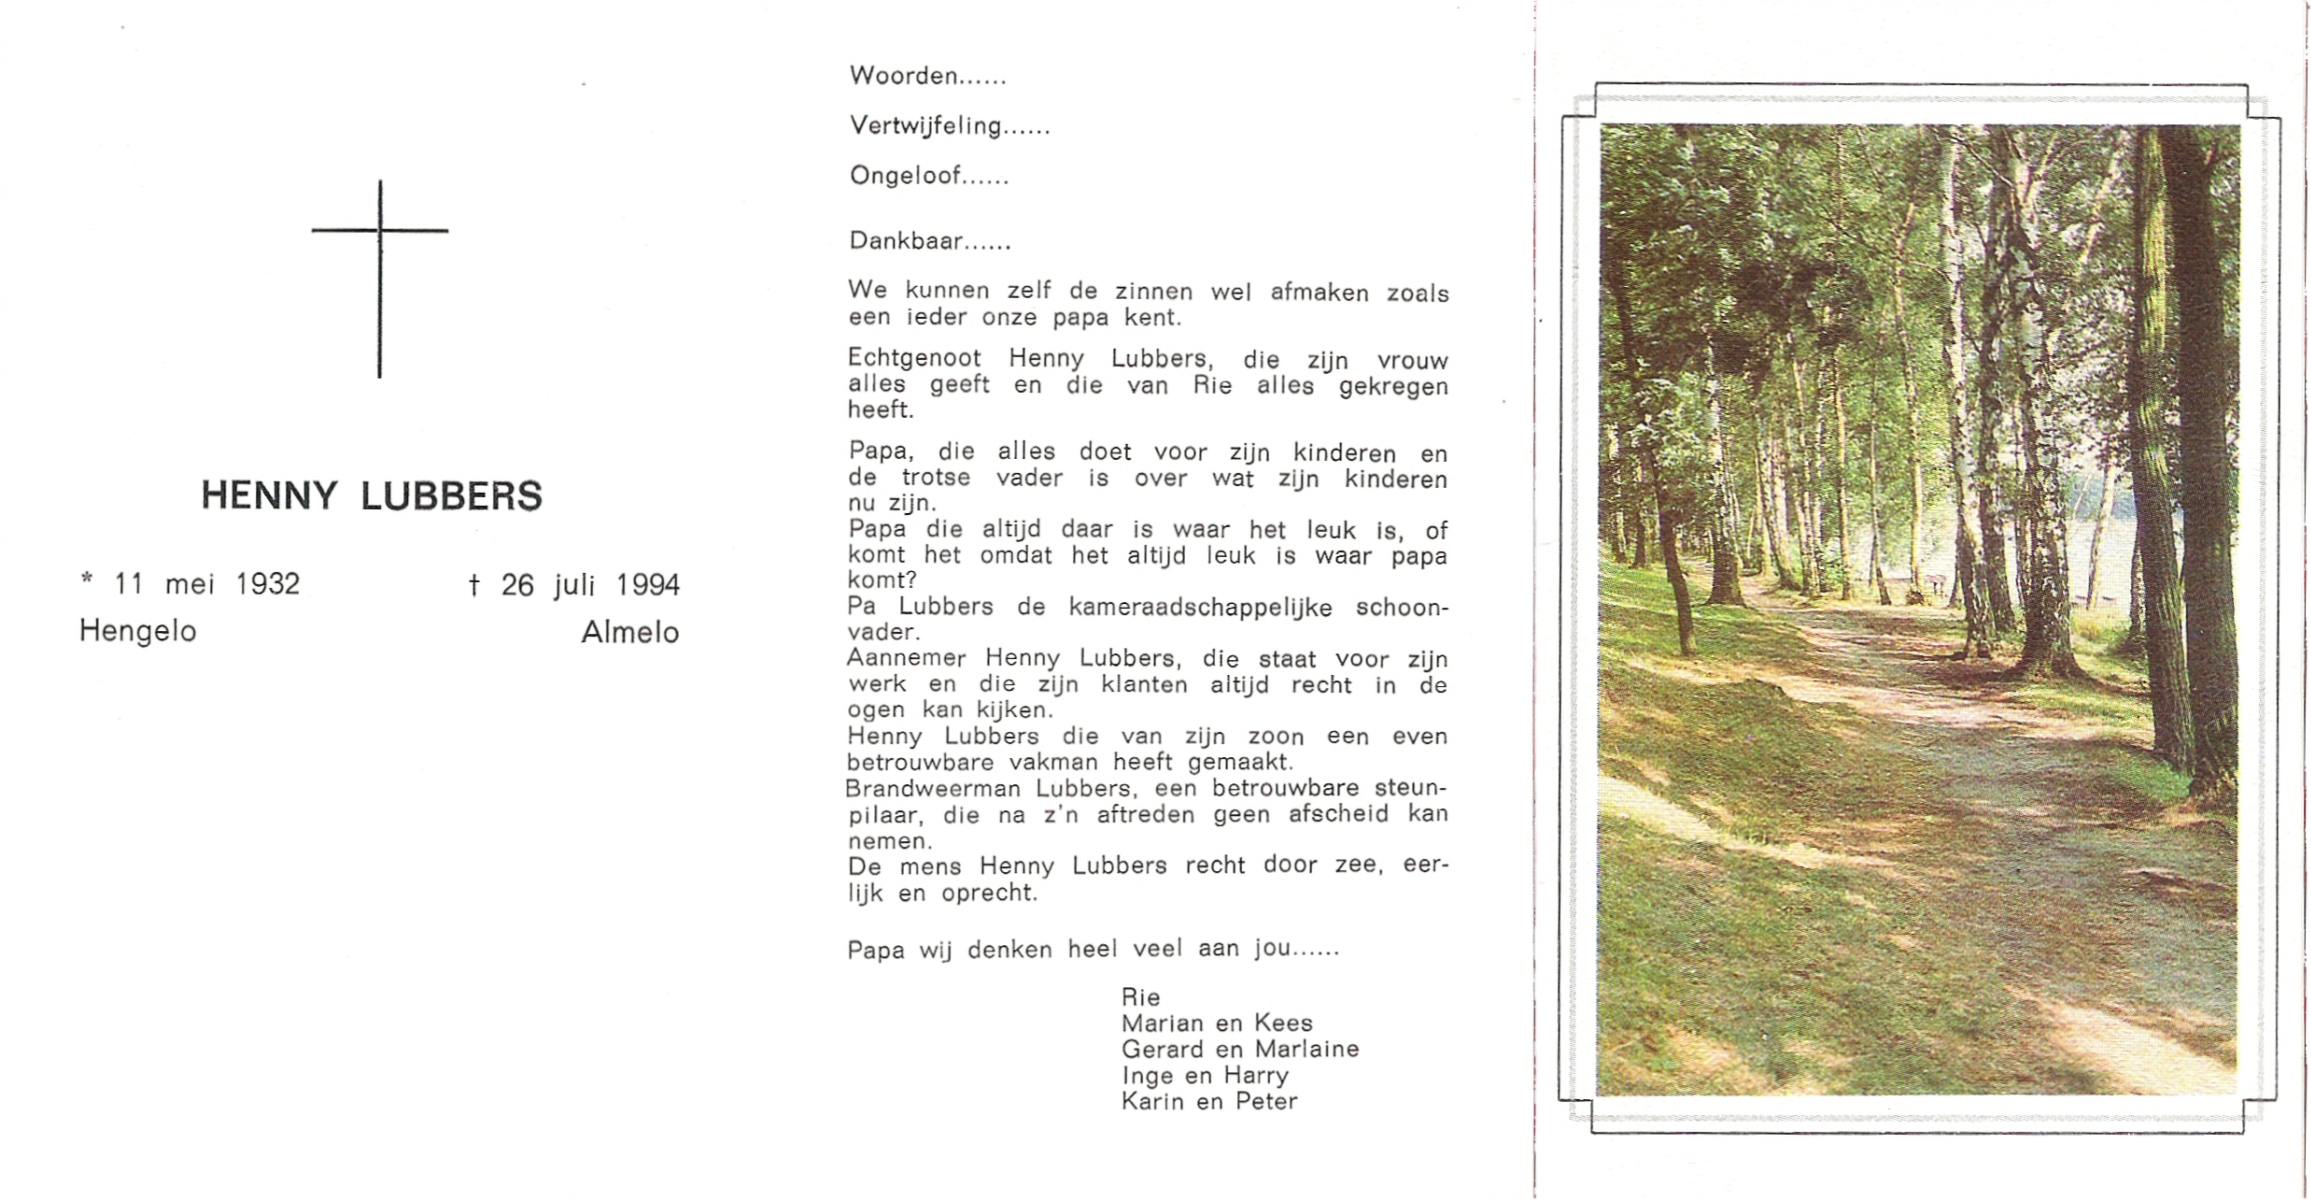 HENNY LUBBERS
* 11 mei 1932
Hengelo
† 26 juli 1994
Almelo
Woorden......
Vertwijfeling......
Ongeloof......
Dankbaar......
We kunnen zelf de zinnen wel afmaken zoals
een ieder onze papa kent.
Echtgenoot Henny Lubbers, die zijn vrouw
alles geeft en die van Rie alles gekregen
heeft.
Papa, die alles doet voor zijn kinderen en
de trotse vader is over wat zijn kinderen
nu zijn.
Papa die altijd daar is waar het leuk is, of
komt het omdat het altijd leuk is waar papa
komt?
Pa Lubbers de kameraadschappelijke schoon-
vader.
Aannemer Henny Lubbers, die staat voor zijn
werk en die zijn klanten altijd recht in de
ogen kan kijken.
Henny Lubbers die van zijn zoon een even
betrouwbare vakman heeft gemaakt.
Brandweerman Lubbers, een betrouwbare steun-
pilaar, die na z'n aftreden geen afscheid kan
nemen.
De mens Henny Lubbers recht door zee, eer-
lijk en oprecht.
Papa wij denken heel veel aan jou......
Rie
Marian en Kees
Gerard en Marlaine
Inge en Harry
Karin en Peter